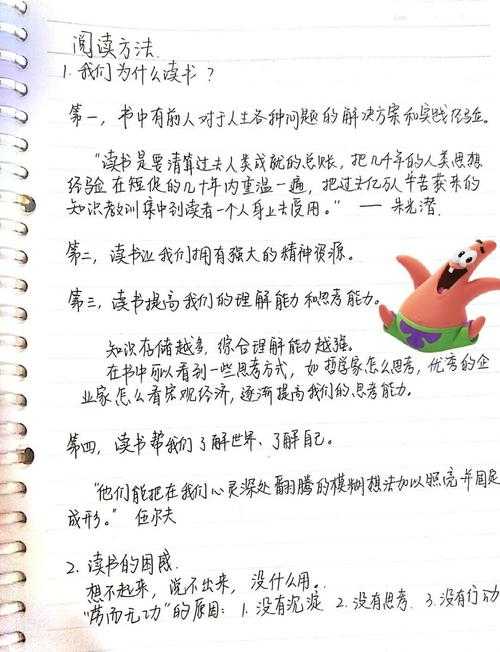 阅读方法
1. 我们为什么读书？
第一，书中有前人对于人生各种问题的解决方案和实践经验。
"读书是要清算过去人类成就的总账，把几千年的人类思想
经验在短促的几十年内重温一遍，把过去亿万人辛苦获来的
知识教训集中到读者一个人身上去受用。" —— 朱光潜
第二，读书让我们拥有强大的精神资源。
第三，读书提高我们的理解能力和思考能力。
知识存储越多，综合理解能力越强。
在书中可以看到一些思考方式，如哲学家怎么思考，优秀的企
业家怎么看宏观经济，逐渐提高我们的思考能力。
第四，读书帮我们了解世界、了解自己。
"他们能把在我们心灵深处翻腾的模糊想法加以照亮并固定
成形。" 伍尔夫
2. 读书的困惑.
想不起来，说不出来，没什么用。
"劳而无功"的原因：1. 没有沉淀 2. 没有思考. 3. 没有行动